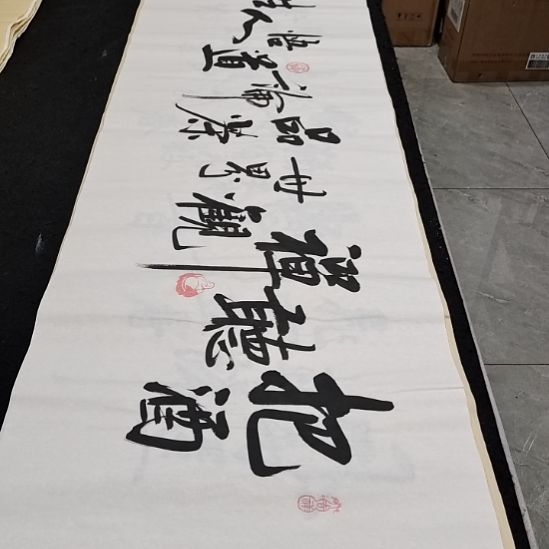 把酒
聽
禪觀
世界
品茶
論道
悟人